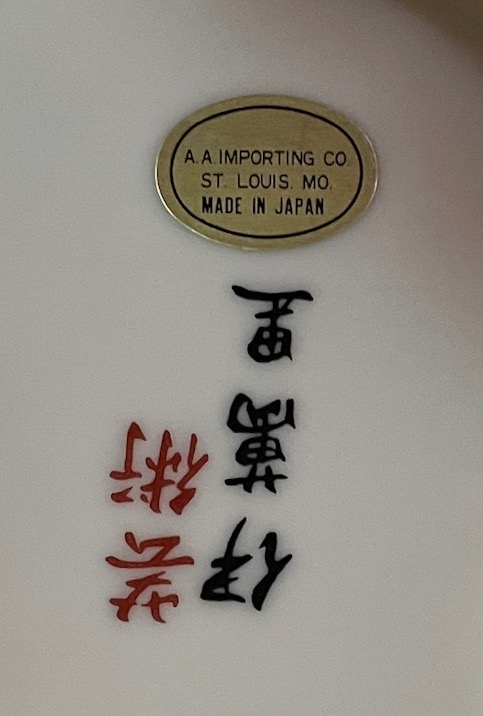 A.A. IMPORTING CO.
ST. LOUIS. MO.
MADE IN JAPAN
芸術
伊萬里